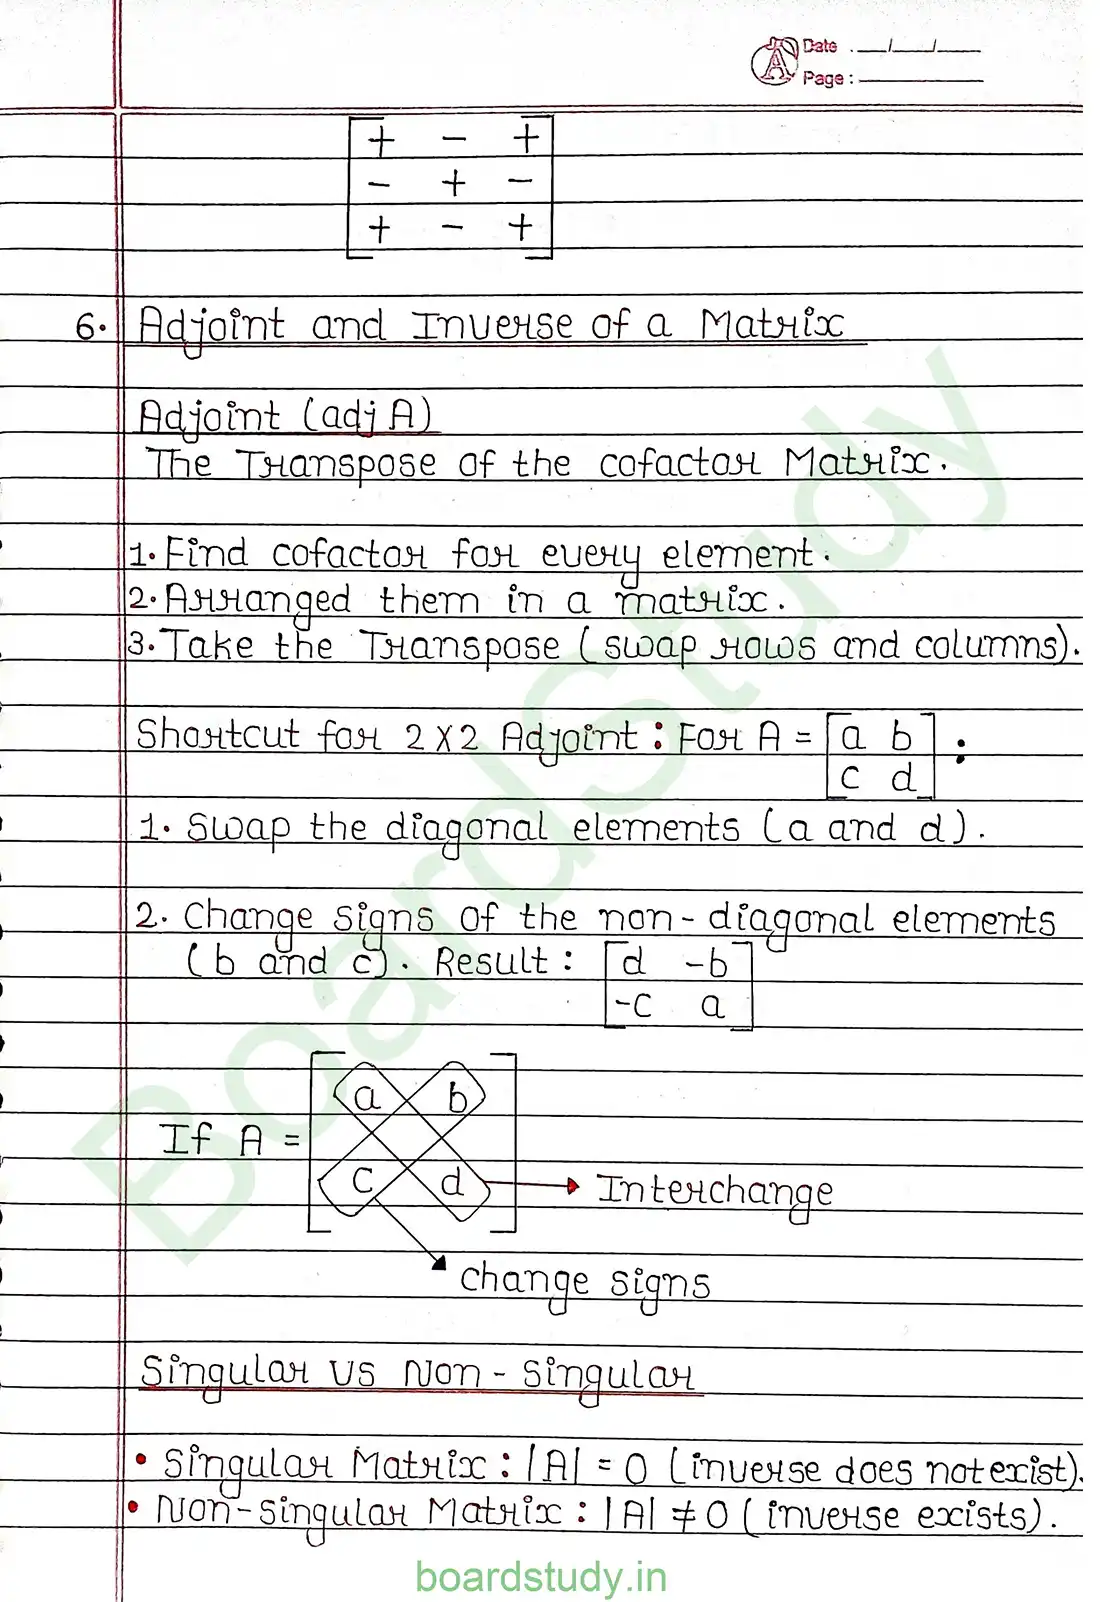 Date . __/__/__
Page : ______
+ - +
- + -
+ - +
6. Adjoint and Inverse of a Matrix
Adjoint (adj A)
The Transpose of the cofactor Matrix.
1. Find cofactor for every element.
2. Arranged them in a matrix.
3. Take the Transpose (swap rows and columns).
Shortcut for 2 X 2 Adjoint : For A = [a b] :
[c d]
1. Swap the diagonal elements (a and d).
2. Change signs of the non-diagonal elements
(b and c). Result : [d -b]
[-c a]
a b
If A =
c d → Interchange
change signs
Singular VS Non-Singular
• Singular Matrix : |A| = 0 (inverse does not exist).
• Non-singular Matrix : |A| ≠ 0 (inverse exists).
BoardStudy
boardstudy.in